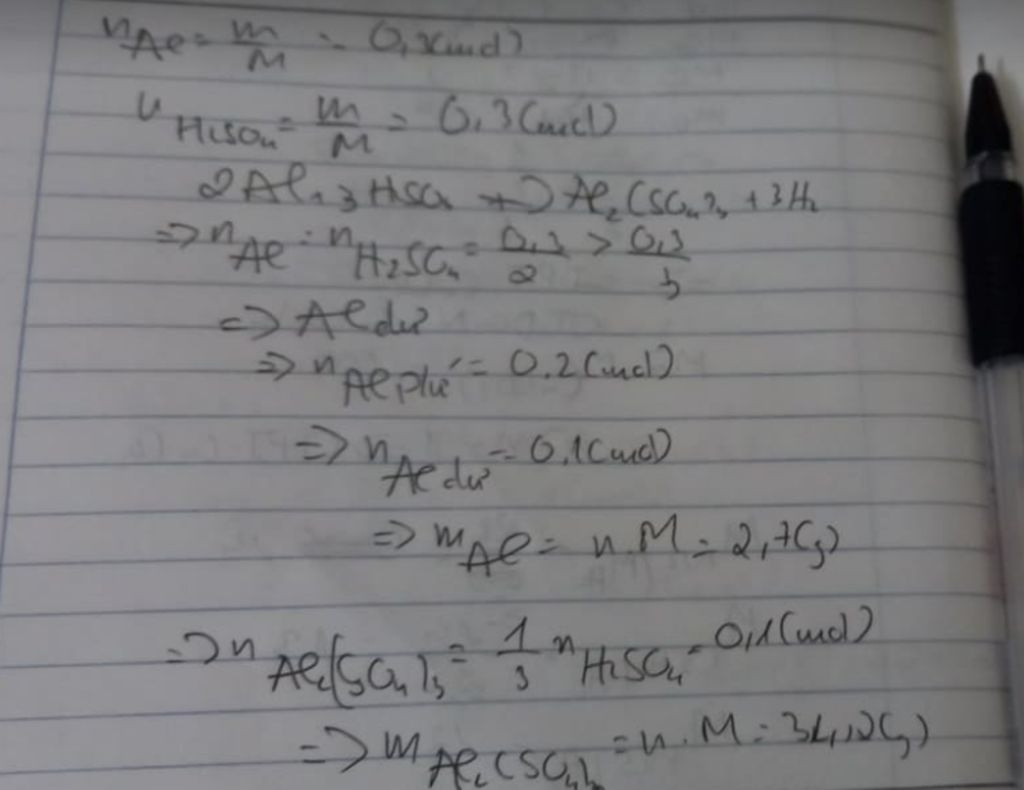 nAl = m/M = 0,3(mol)
nH2SO4 = m/M = 0,3(mol)
2Al + 3H2SO4 → Al2(SO4)3 + 3H2
=> nAl : nH2SO4 = 0,3/2 > 0,3/3
=> Al dư
=> nAl pứ = 0.2(mol)
=> nAl dư = 0.1(mol)
=> mAl = n.M = 2,7(g)
=> nAl2(SO4)3 = 1/3 nH2SO4 = 0,1(mol)
=> mAl2(SO4)3 = n.M = 34,2(g)